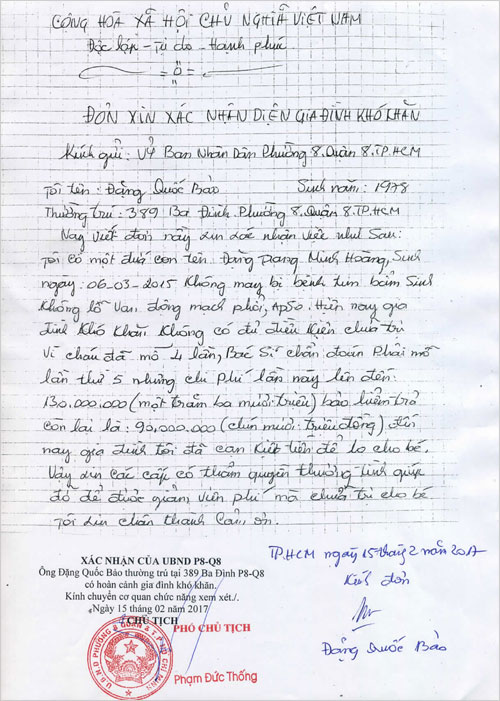 CỘNG HÒA XÃ HỘI CHỦ NGHĨA VIỆT NAM
Độc lập - Tự do - Hạnh phúc
ĐƠN XIN XÁC NHẬN DIỆN GIA ĐÌNH KHÓ KHĂN
Kính gửi : Uỷ Ban Nhân Dân Phường 8. Quận 8. TP. HCM
Tôi tên : Đặng Quốc Bảo Sinh năm : 1978
Thường trú : 389 Ba Đình. Phường 8. Quận 8. TP. HCM
Nay viết đơn này xin xác nhận việc như sau :
Tôi có một đứa con tên : Đặng Minh Hoàng, Sinh
ngày : 06-03-2015 không may bị bệnh tim bẩm sinh
không lỗ van động mạch phổi, Hiện nay gia
đình khó khăn không có đủ điều kiện chữa trị
Vì cháu đã mổ 4 lần, Bác Sĩ chẩn đoán phải mổ
lần thứ 5 nhưng chi phí lần này lên đến :
130.000.000 (một trăm ba mươi triệu) bảo hiểm trả
còn lại là : 90.000.000 (chín mươi triệu đồng) đến
nay gia đình tôi đã cạn kiệt tiền để lo cho bé.
Vậy xin các cấp có thẩm quyền thương tình giúp
đỡ để được giảm viện phí mà chữa trị cho bé
Tôi xin chân thành cảm ơn.
TP.HCM ngày 15 tháng 2 năm 2017
Kính đơn
Đặng Quốc Bảo
XÁC NHẬN CỦA UBND P8-Q8
Ông Đặng Quốc Bảo thường trú tại 389 Ba Đình P8-Q8
có hoàn cảnh gia đình khó khăn.
Kính chuyển cơ quan chức năng xem xét./.
Ngày 15 tháng 02 năm 2017
CHỦ TỊCH
PHÓ CHỦ TỊCH
U.B.N.D PHƯỜNG 8 QUẬN 8 T.P HỒ CHÍ MINH
Phạm Đức Thống